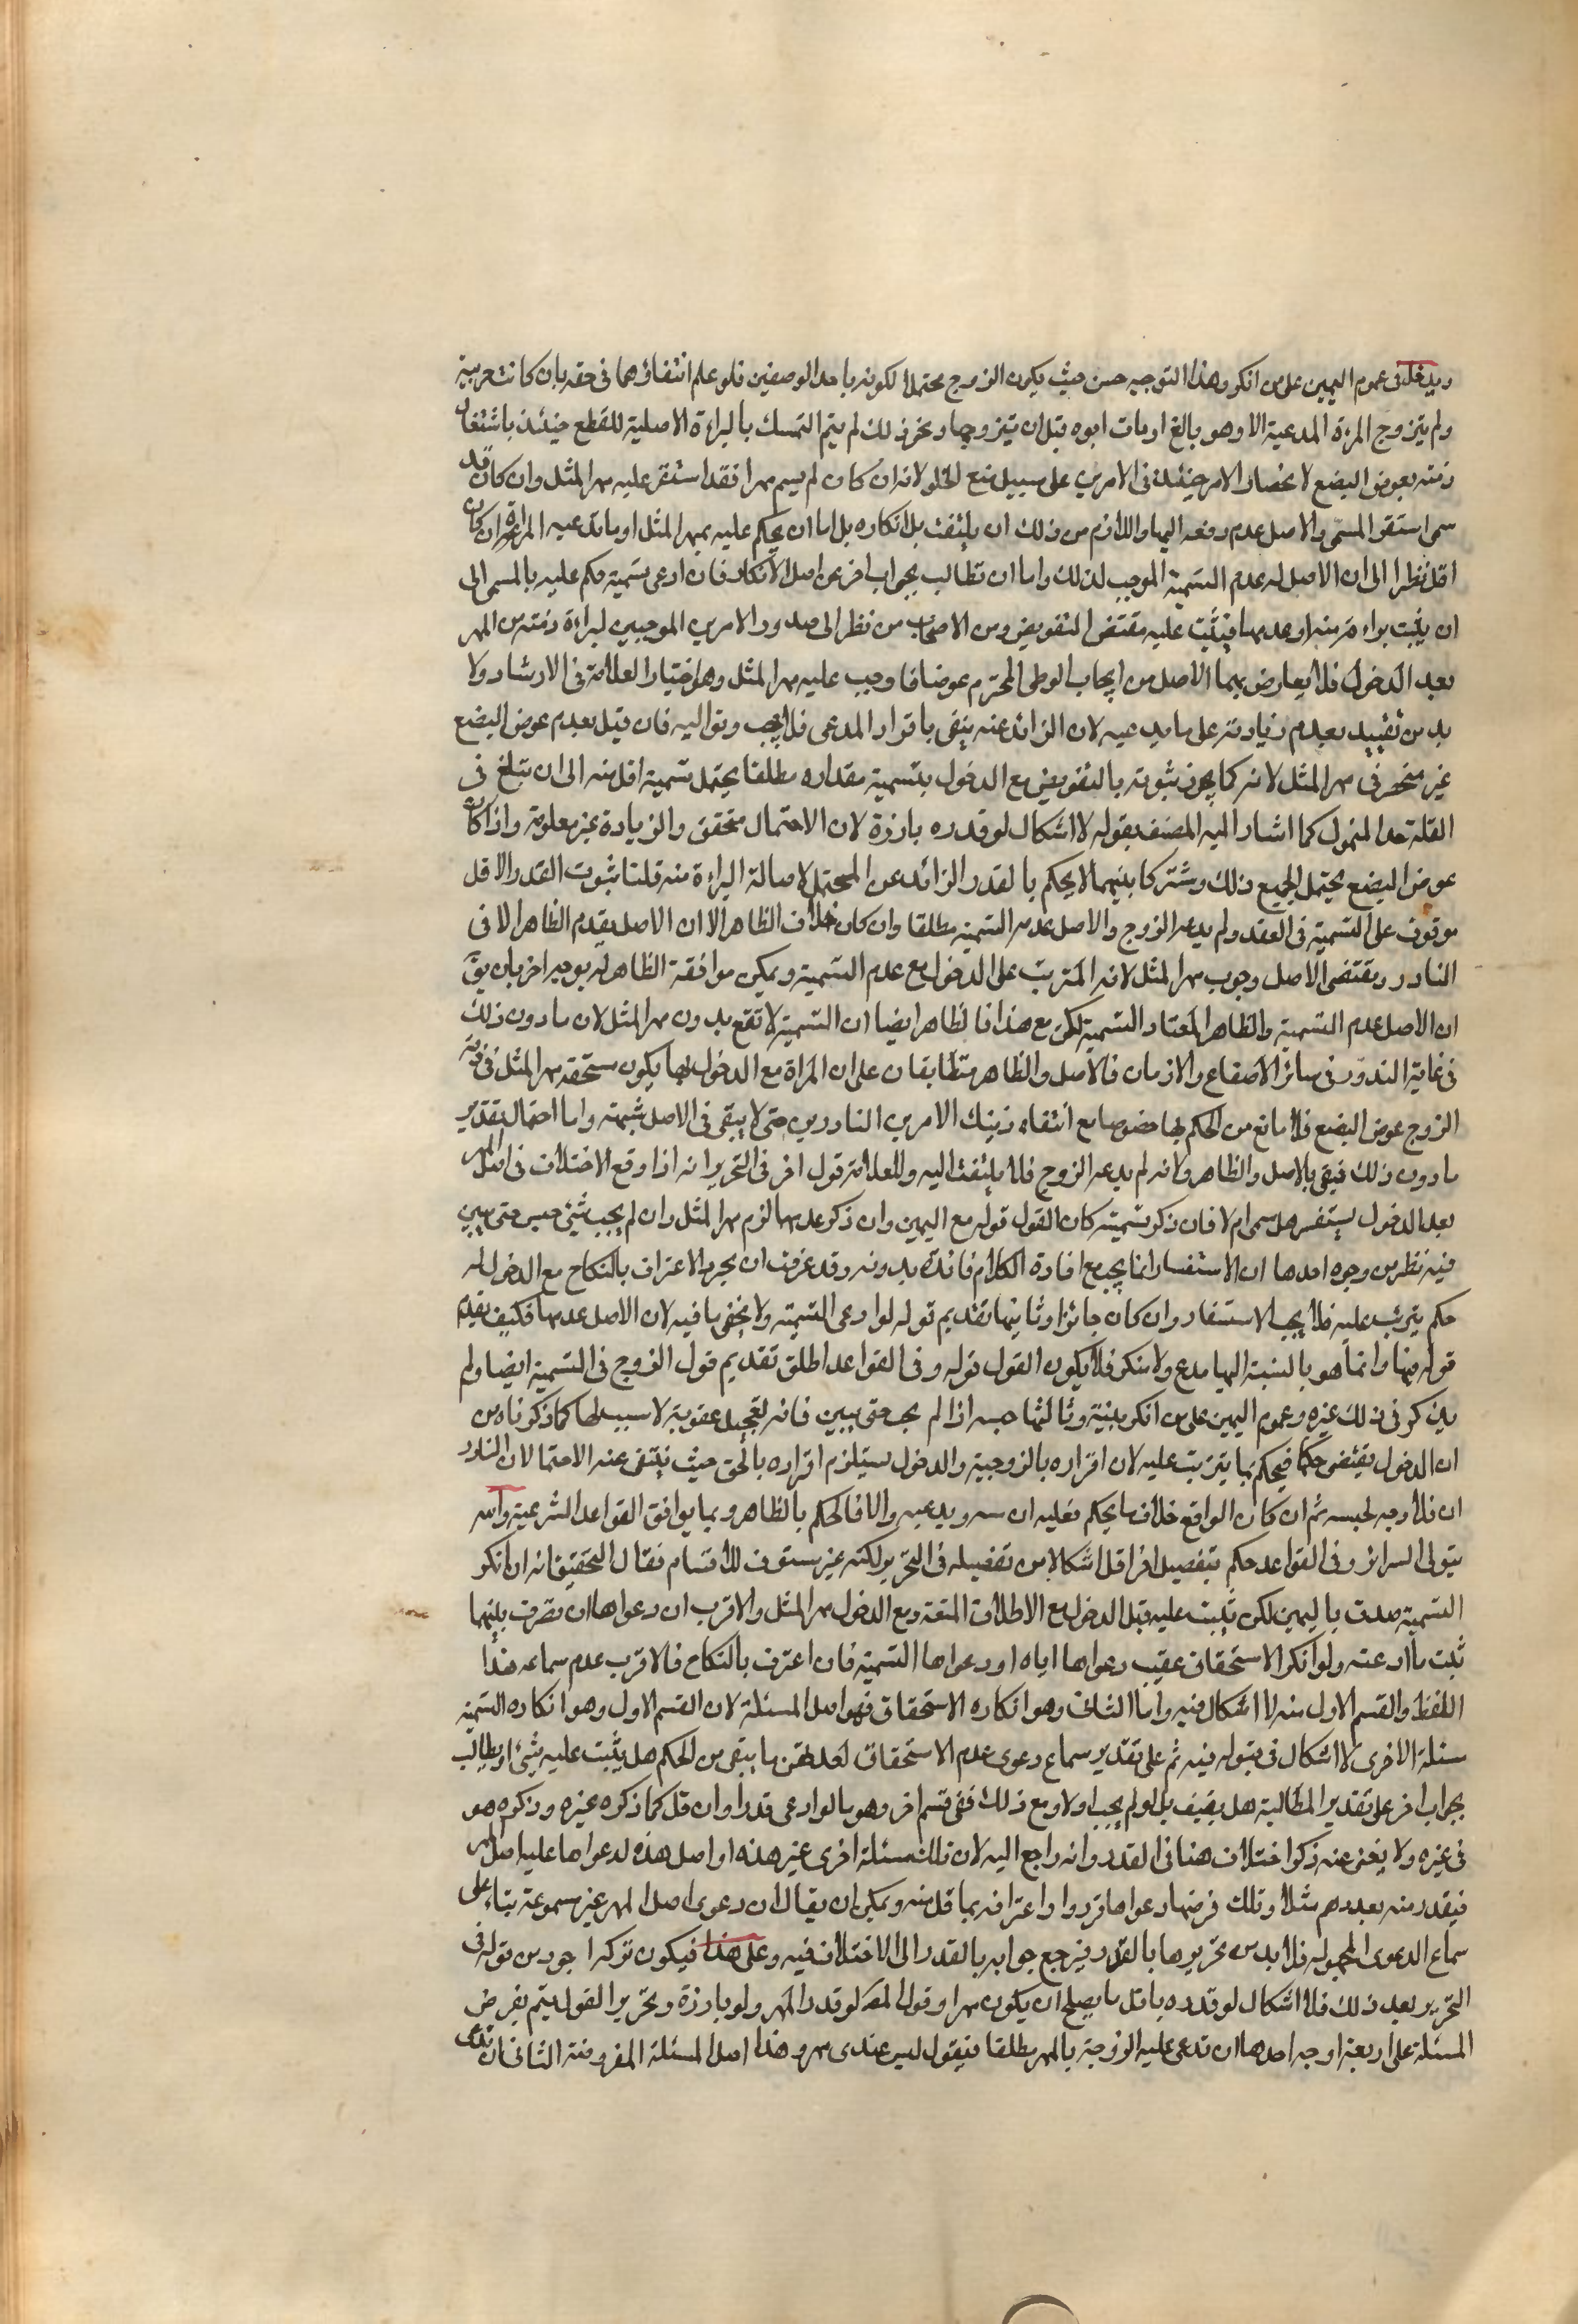 ويدخل في عموم اليمين على من انكر وهذا التوجيه حسن حيث يكون الزوج محتملا لكونه باحد الوصفين فلو علم انتفاؤهما في حقه بان كانت حرية
ولم يتزوج المرءة المدعية الا وهو بالغ او مات ابوه قبل ان يتزوجها ونحو ذلك لم يتم التمسك بالبراءة الاصلية للقطع حينئذ باشتغال
ذمته بعوض البضع لانحصار الامر حينئذ في الامرين على سبيل منع الخلو لانه ان كان لم يسم مهرا فقد استقر عليه مهر المثل وان كان قد
سمى استقر المسمى والاصل عدم دفعه اليها واللازم من ذلك ان يلتفت بل انكاره بل اما ان يحكم عليه بمهر المثل او ما تدعيه المراة ان كان
اقل نظرا الى ان الاصل له عدم التسمية الموجب لذلك واما ان تطالب بجواب اخر عن اصل الانكار فان ادعى تسمية حكم عليه بالمسمى الى
ان يثبت براءته منه او عدمها فيثبت عليه مقتضى التفويض ومن الاصحاب من نظر الى صدور الامرين الموجبين لبراءة ذمته من المهر
بعد الدخول فلا يعارض بهما الاصل من ايجاب الوطى المحترم عوضا فاوجب عليه مهر المثل وهو اختيار العلامة في الارشاد ولا
بد من تقييده بعدم زيادته على ما يدعيه لان الزائد عنه ينفى باقرار المدعى فلا يجب وتواليه فان قيل بعدم عوض البضع
غير منحصر في مهر المثل لانه كما يجوز ثبوته بالتفويض مع الدخول بتسمية مقداره مطلقا يحتمل تسمية اقل منه الى ان تبلغ في
القلة حد المتمول كما اشار اليه المصنف بقوله لا اشكال لو قدره بارزة لان الاحتمال متحقق والزيادة غير معلومة واذا كان
عوض البضع يحتمل الجميع ذلك ومشتركا بينهما لا يحكم بالقدر الزائد عن المحتمل لاصالة البراءة منه قلنا ثبوت القدر الاقل
موقوف على التسمية في العقد ولم يدعه الزوج والاصل عدم التسمية مطلقا وان كان خلاف الظاهر الا ان الاصل يقدم الظاهر الا في
النادر ويقتضى الاصل وجوب مهر المثل لانه المترتب على الدخول مع عدم التسمية ويمكن موافقة الظاهر له بوجه اخر بان يق
ان الاصل عدم التسمية والظاهر المعتاد التسمية لكن مع هذا فالظاهر ايضا ان التسمية لا تقع بدون مهر المثل لان ما دون ذلك
في غاية الندور في سائر الاصقاع والازمان فالاصل والظاهر متطابقان على ان المراة مع الدخول بها يكون مستحقه مهر المثل في ذمة
الزوج عوض البضع فلا مانع من الحكم لها خصوصا مع انتفاء ذينك الامرين النادرين حتى لا يبقى في الاصل شبهة واما احتمال تقدير
ما دون ذلك فيقى بالاصل والظاهر ولانه لم يدعه الزوج فلا يلتفت اليه وللعلامة قول اخر في التحرير انه اذا وقع الاختلاف في اصل المهر
بعد الدخول يستفسر هل سمى ام لا فان ذكر تسمية كان القول قوله مع اليمين وان ذكر عدمها لزم مهر المثل وان لم يجب بشئ حبس حتى يبين
فيه نظر من وجوه احدها ان الاستفسار انما يجب مع افادة الكلام فائدة بدونه وقد عرفت ان مجرد الاعتراف بالنكاح مع الدخول له
حكم يترتب عليه فلا يجب الاستفسار وان كان جائزا وثانيها تقديم قوله لو ادعى التسمية ولا يخفى ما فيه لان الاصل عدمها فكيف يقدم
قوله فيها وانما هو بالنسبة اليها مدع ولا منكر فلا يكون القول قوله وفي القواعد اطلق تقديم قول الزوج في التسمية ايضا ولم
يذكر في ذلك غيره وعموم اليمين على من انكر مبنية وثالثها حبسه اذا لم يجب حتى يبين فانه تعجيل عقوبة لا سبيل لها كما ذكرناه من
ان الدخول يقتضى حكما فيحكم بما يترتب عليه لان اقراره بالزوجية والدخول يستلزم اقراره بالحق حيث ينتفى عنه الاحتمالان النادر
ان فلا وجه لحبسه ثم ان كان الواقع خلاف ما يحكم فعليه ان يدعيه والا فالحكم بالظاهر وبما يوافق القواعد الشرعية والله
يتولى السرائر وفي القواعد حكم بتفصيل اخر اقل اشكالا من تفصيله في التحرير لكنه غير مستوف للاقسام فقال التحقيق انه ان انكر
التسمية صدق باليمين لكن يثبت عليه قبل الدخول مع الطلاق المتعة ومع الدخول مهر المثل والاقرب ان دعواها ان تصرف بينهما
ثبت ما ادعته ولو انكر الاستحقاق عقيب دعواها اياه او دعواها التسمية فان اعترف بالنكاح فالاقرب عدم سماعه هذا
اللفظ والقسم الاول منه لا اشكال فيه واما الثاني وهو انكاره الاستحقاق فهو اصل المسئلة لان القسم الاول وهو انكاره التسمية
مسئلة الاخرى لا اشكال في قبوله فيه ثم على تقدير سماع دعوى عدم الاستحقاق لم يعلم ما يبقى من الحكم هل يثبت عليه شئ او يطالب
بجواب اخر على تقدير المطالبة هل يفيد بل لو لم يجب اولا ومع ذلك ففى قسم اخر وهو ما لو ادعى قدرا وان قل كما ذكره غيره وذكره هو
في غيره ولا يغنى عنه ذكر اختلاف هنا في القدر وانه راجع اليه لان تلك مسئلة اخرى غير هذه او اصل هذه لدعواها عليه اصل المهر
فيقدر منه بعد درهم مثلا وتلك فرضها دعواها قدرا واعترافه بما قل منه ويمكن ان يقال ان دعوى اصل المهر غير مسموعة بناء على
سماع الدعوى المجهولة فلا بد من تحريرها بالقدر فيرجع جوابه بالقدر الى الاختلاف فيه وعلى هذا فيكون تركه اجود من قوله في
التحرير بعد ذلك فلا اشكال لو قدره باقل ما يصلح ان يكون مهرا وقول المص لو قدر المهر ولو بارزة وتحرير القول يتم بفرض
المسئلة على اربعة اوجه احدها ان تدعى عليه الزوجة بالمهر مطلقا فيقول ليس عندى مهر وهذا اصل المسئلة المفروضة الثاني ان تدعى